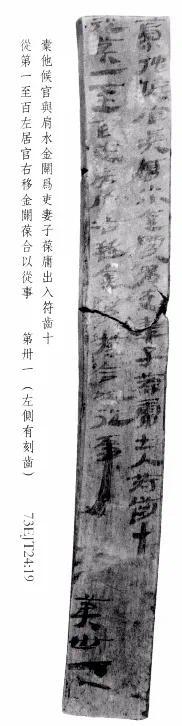 橐他候官與肩水金關爲吏妻子葆庸出入符齒十
從第一至百左居官右移金關葆合以從事 第卅一
橐他候官與肩水金關爲吏妻子葆庸出入符齒十
從第一至百左居官右移金關葆合以從事 第卅一 (左側有刻齒) 73EJT24:19